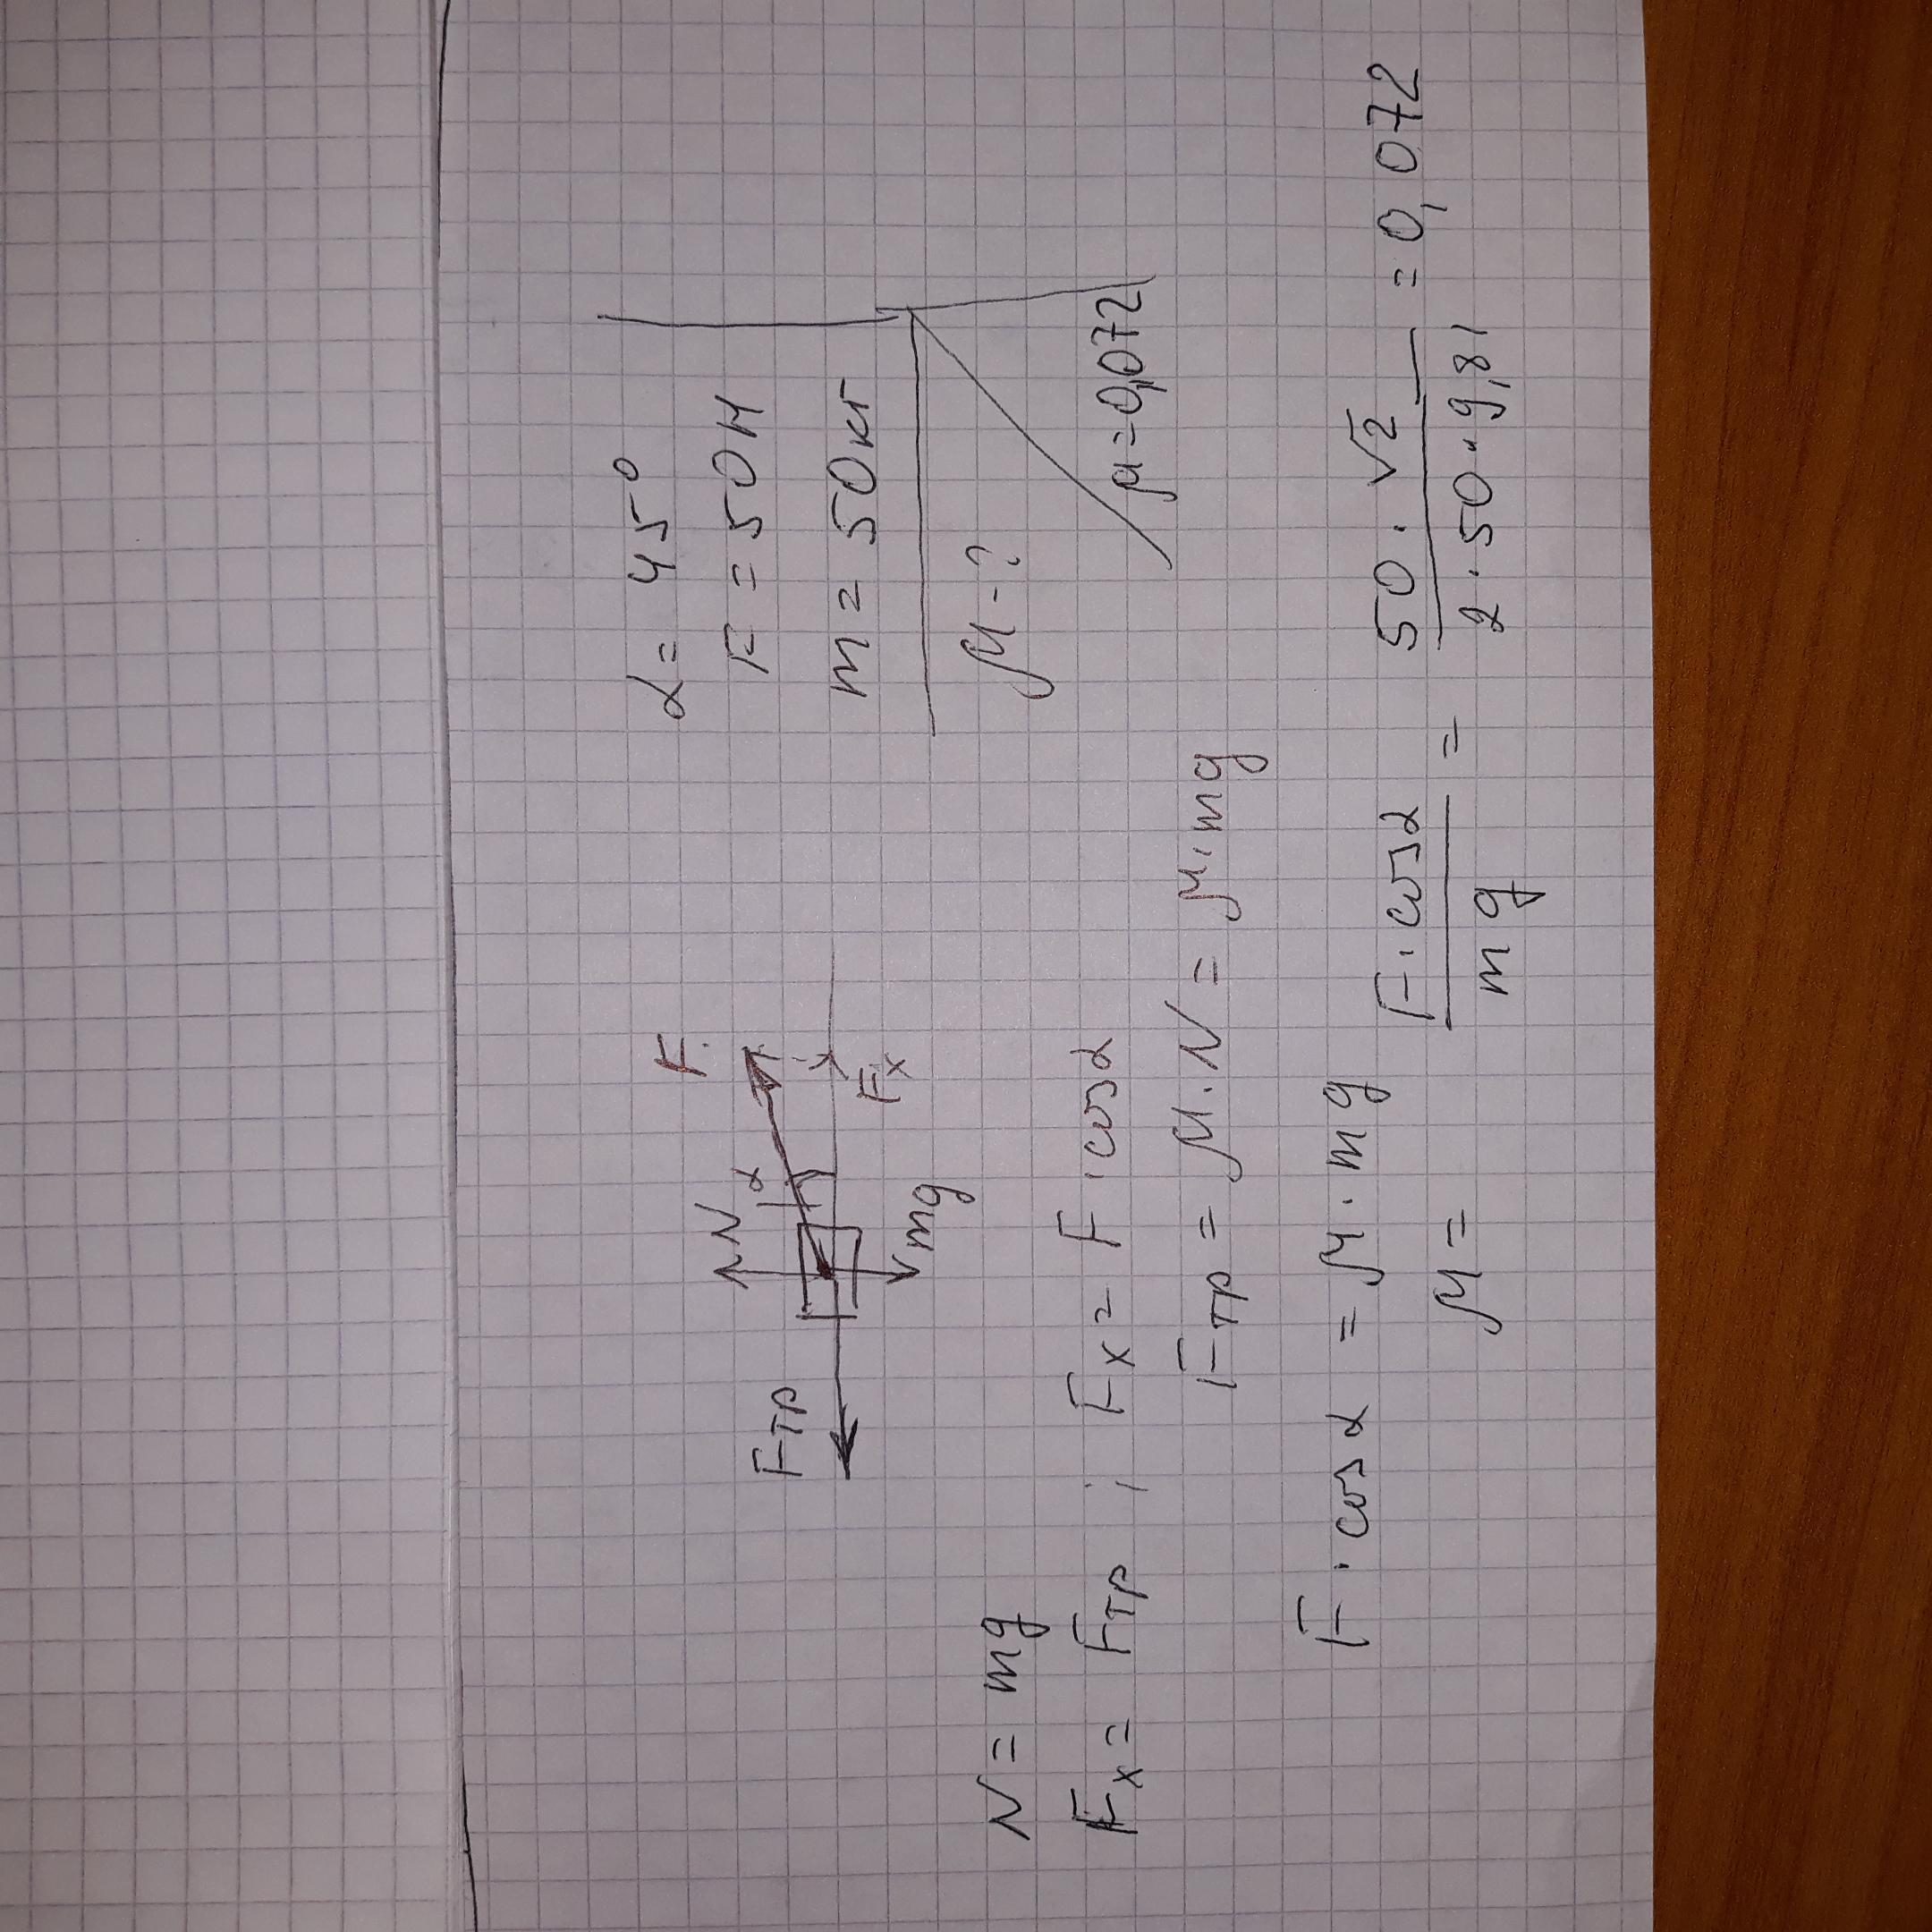 α = 45°
F = 50 Н
m = 50 кг
μ - ?
μ = 0,072
Fтр
N
α
F
Fx
mg
N = mg
Fx = Fтр ; Fx = F · cosα
Fтр = μ · N = μ · mg
F · cos α = μ · mg
μ = F · cosα / mg = 50 · √2 / 2 · 50 · 9,81 = 0,072